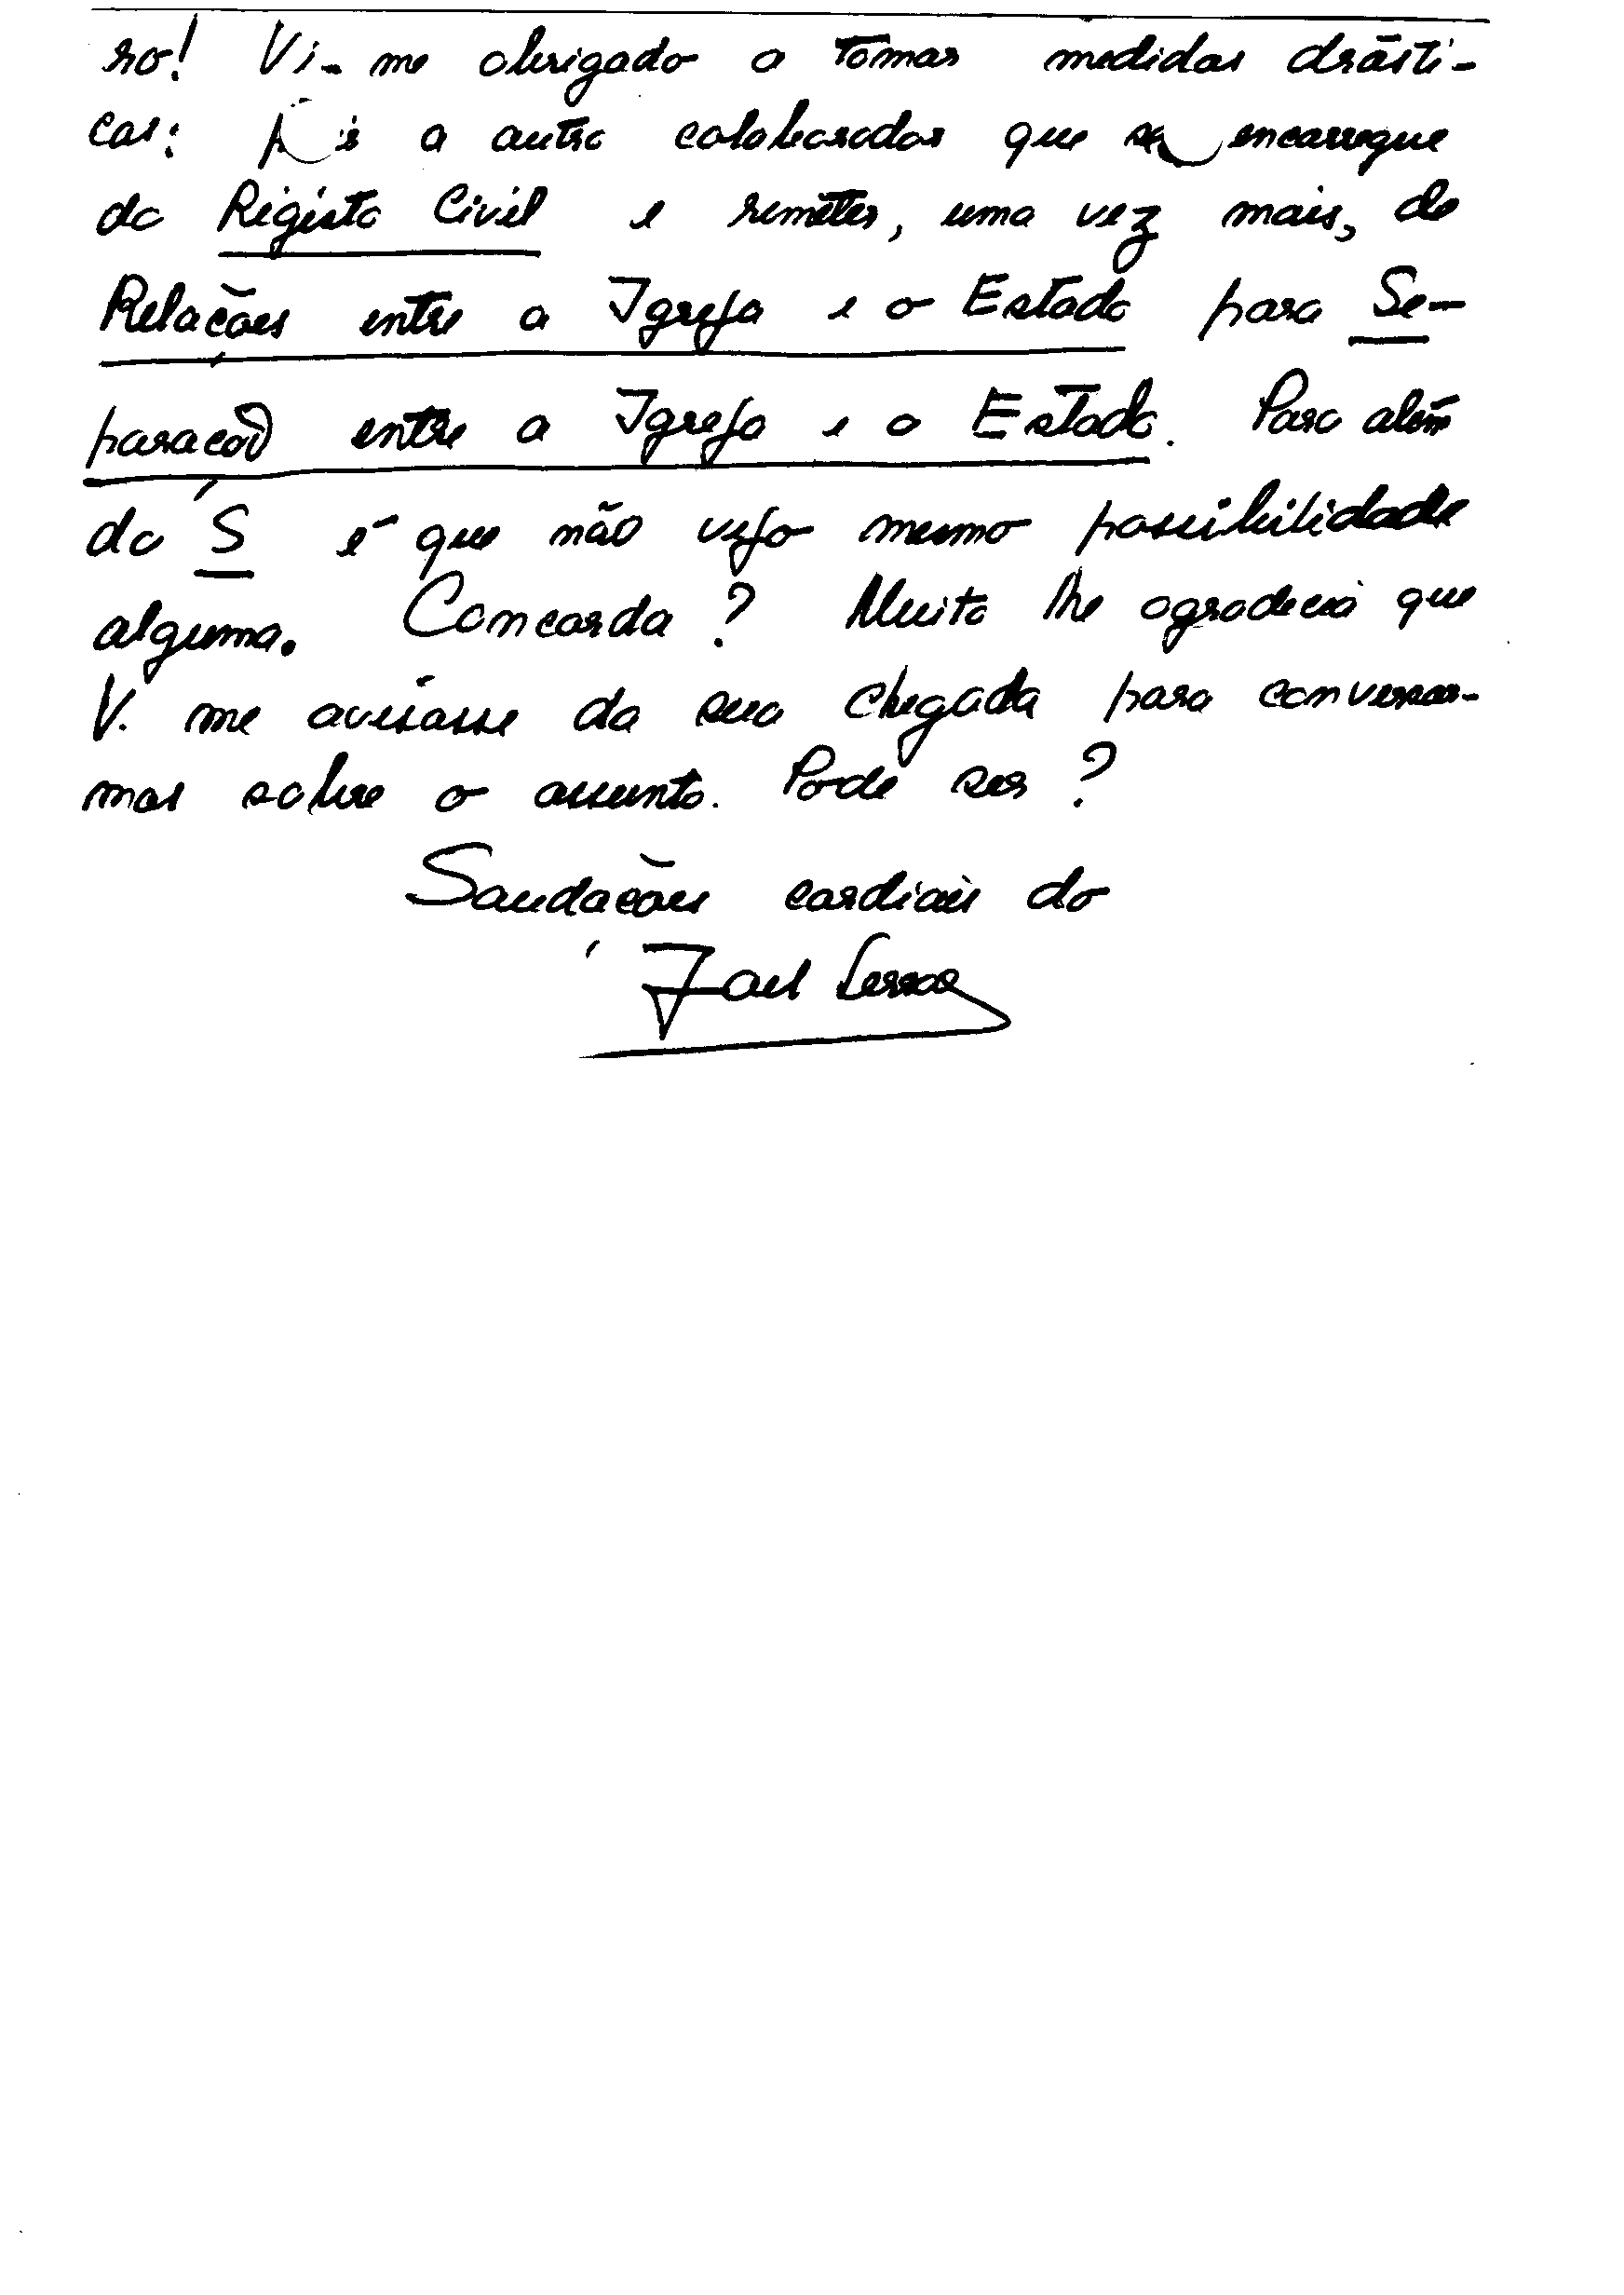 ro! Vi-me obrigado a tomar medidas drásti-
cas: a outro colaborador que se encarregue
do Registo Civil e remeter, uma vez mais, de
Relações entre a Igreja e o Estado para Se-
paração entre a Igreja e o Estado. Para além
do S é que não vejo mesmo possibilidade
alguma. Concorda? Muito lhe agradecia que
V. me avisasse da sua chegada para conversar-
mos sobre o assunto. Pode ser?
Saudações cordiais do
Joel Serrão